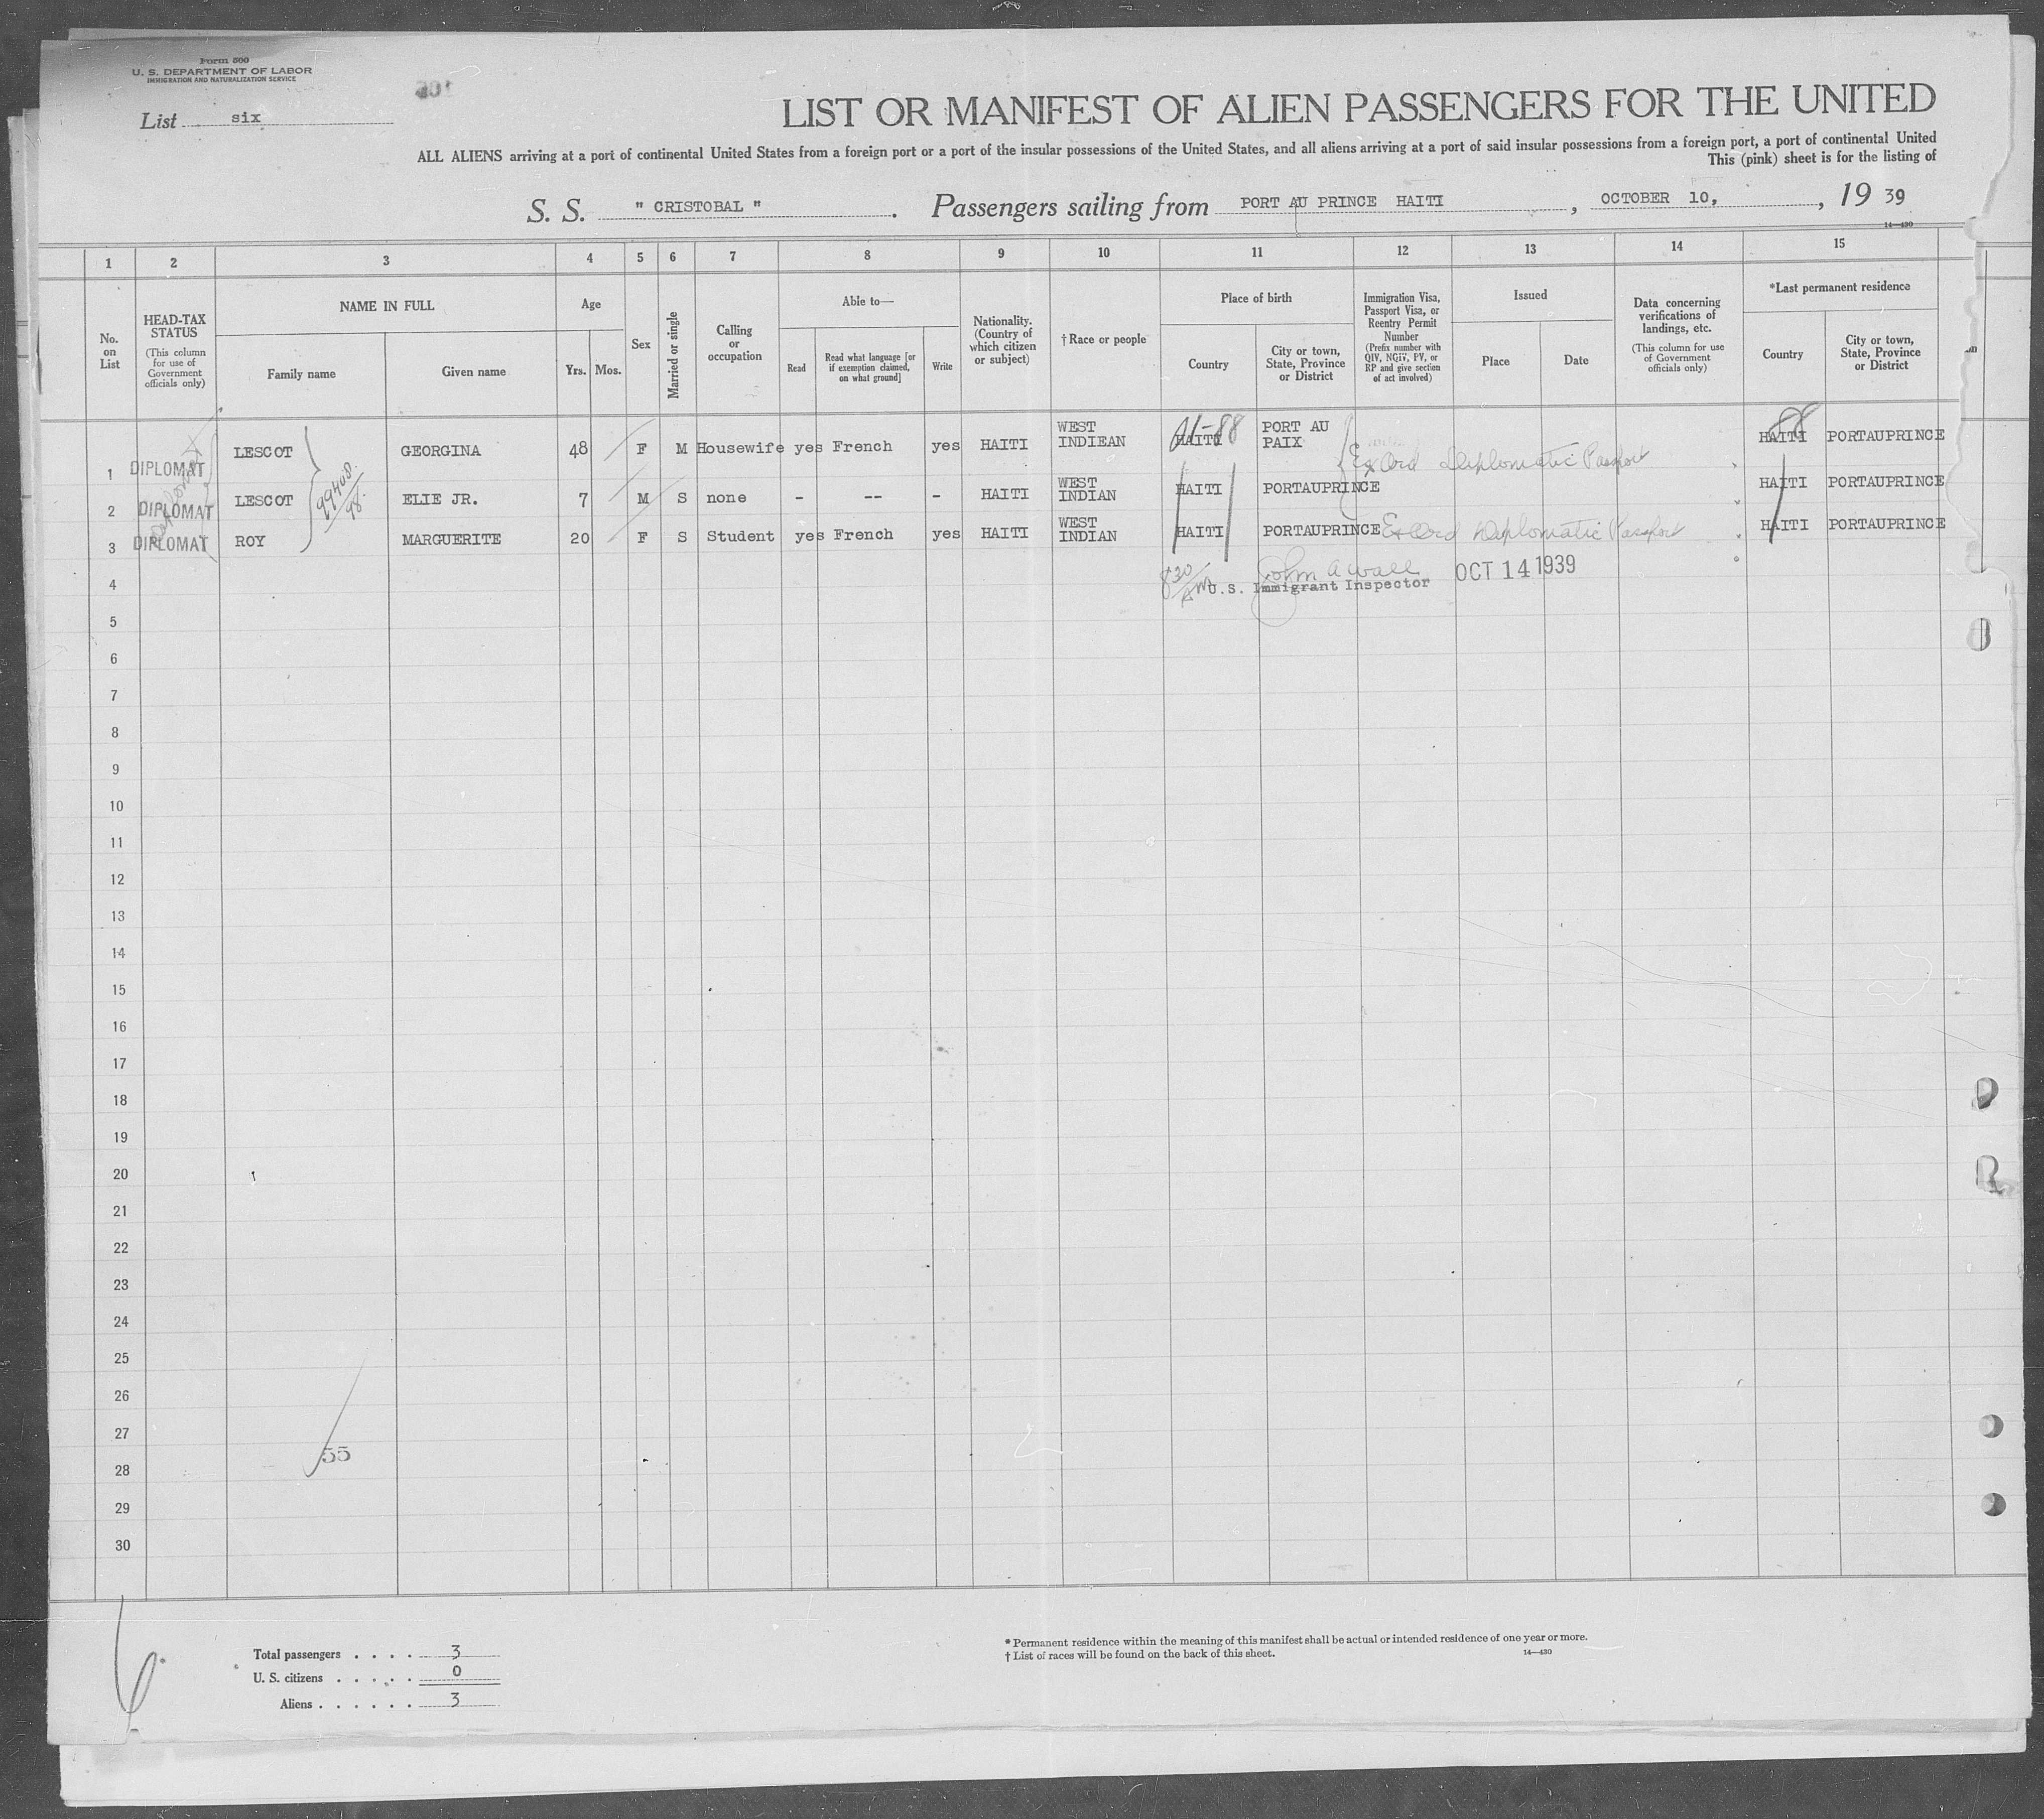 Form 500
U. S. DEPARTMENT OF LABOR
IMMIGRATION AND NATURALIZATION SERVICE
List six
LIST OR MANIFEST OF ALIEN PASSENGERS FOR THE UNITED
ALL ALIENS arriving at a port of continental United States from a foreign port or a port of the insular possessions of the United States, and all aliens arriving at a port of said insular possessions from a foreign port, a port of continental United
This (pink) sheet is for the listing of
S. S. " CRISTOBAL " . Passengers sailing from PORT AU PRINCE HAITI , OCTOBER 10, , 19 39
14—430
1 2 3 4 5 6 7 8 9 10 11 12 13 14 15
No. on List
HEAD-TAX STATUS (This column for use of Government officials only)
NAME IN FULL
Family name
Given name
Age
Yrs. Mos.
Sex
Married or single
Calling or occupation
Able to—
Read
Read what language [or if exemption claimed, on what ground]
Write
Nationality. (Country of which citizen or subject)
† Race or people
Place of birth
Country
City or town, State, Province or District
Immigration Visa, Passport Visa, or Reentry Permit Number (Prefix number with QIV, NQIV, PV, or RP and give section of act involved)
Issued
Place
Date
Data concerning verifications of landings, etc. (This column for use of Government officials only)
*Last permanent residence
Country
City or town, State, Province or District
1 DIPLOMAT LESCOT GEORGINA 48 F M Housewife yes French yes HAITI WEST INDIEAN HAITI PORT AU PAIX Diplomatic Passport HAITI PORTAUPRINCE
2 DIPLOMAT LESCOT ELIE JR. 7 M S none - -- - HAITI WEST INDIAN HAITI PORTAUPRINCE HAITI PORTAUPRINCE
3 DIPLOMAT ROY MARGUERITE 20 F S Student yes French yes HAITI WEST INDIAN HAITI PORTAUPRINCE Diplomatic Passport HAITI PORTAUPRINCE
John A Wall
U.S. Immigrant Inspector OCT 14 1939
4
5
6
7
8
9
10
11
12
13
14
15
16
17
18
19
20
21
22
23
24
25
26
27
55
28
29
30
Total passengers . . . . 3
U. S. citizens . . . . . 0
Aliens . . . . . . 3
* Permanent residence within the meaning of this manifest shall be actual or intended residence of one year or more.
† List of races will be found on the back of this sheet.
14—430